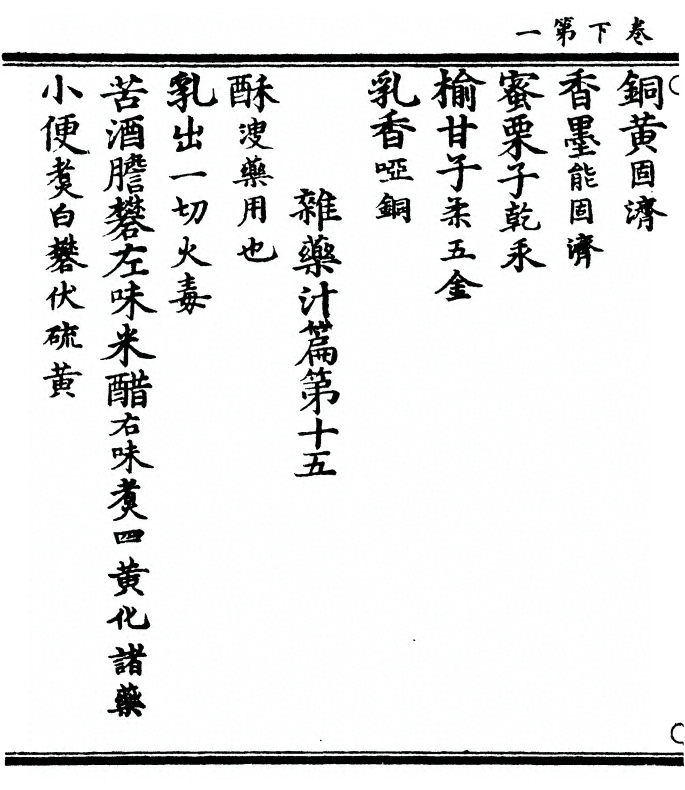 卷下第一
銅黃固濟
香墨能固濟
蜜栗子乾汞
榆甘子柔五金
乳香啞銅
雜藥汁篇第十五
酥溲藥用也
乳出一切火毒
苦酒膽礬左味米醋右味煑四黃化諸藥
小便煑白礬伏硫黃